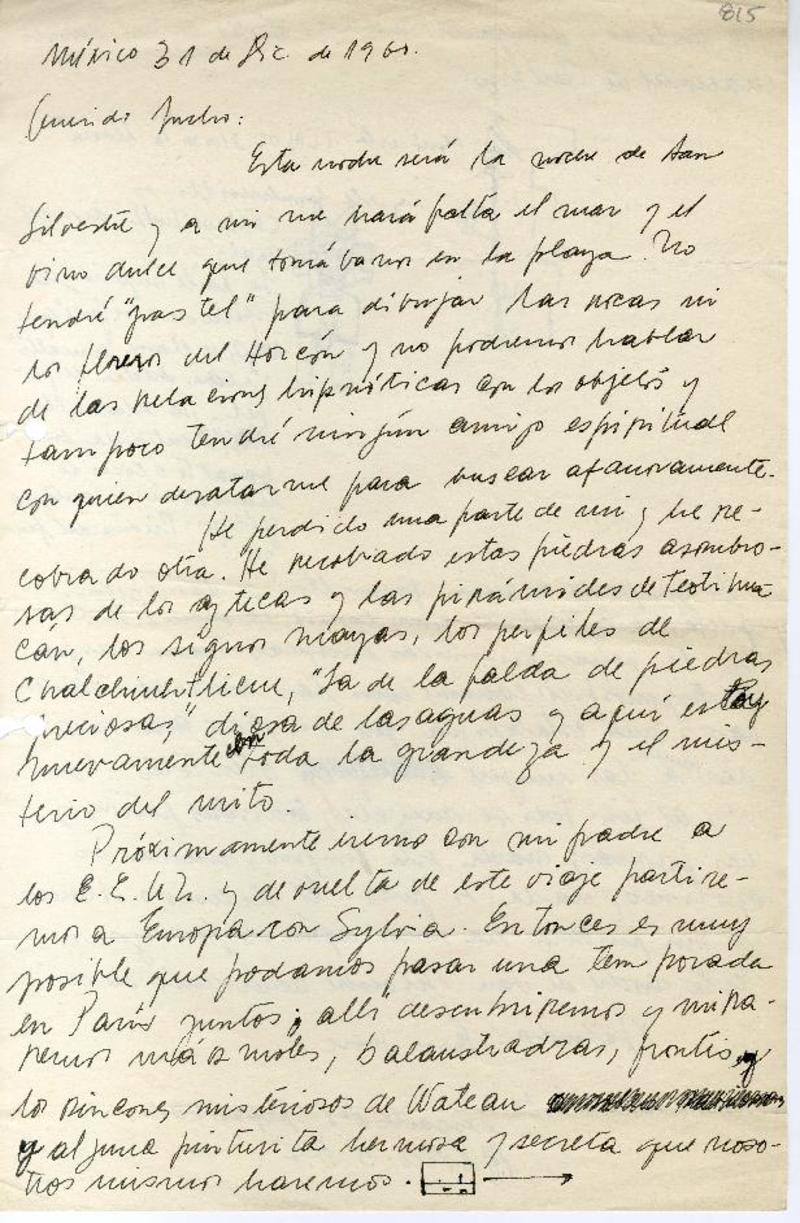 815
México 31 de Dic. de 196
Querido
Esta noche será la noche de San
Silvestre y a mi me hará falta el mar y el
vino dulce que tomábamos en la playa. No
tendré "pastel" para dibujar las rocas ni
los floreros del Horcón y no podremos hablar
de las relaciones hipnóticas con los objetos y
tampoco tendré ningún amigo espiritual
con quien desatarme para buscar afanosamente.
He perdido una parte de mi y he re-
cobrado otra. He recobrado estas piedras asombro-
sas de los aztecas y las pirámides de Teotihua
cán, los signos mayas, los perfiles de
Chalchiuhtlicue, "La de la falda de piedras
preciosas," diosa de las aguas y aquí estoy
nuevamente con toda la grandeza y el mis-
terio del mito.
Próximamente iremo con mi padre a
los E.E.U.U. y de vuelta de este viaje partire-
mos a Europa con Sylvia. Entonces es muy
posible que podamos pasar una temporada
en París juntos; allí descubriremos y mira-
remos mármoles, balaustradras, frontis, y
los rincones misteriosos de Wateau
y alguna pinturita hermosa y secreta que noso-
tros mismos haremos.